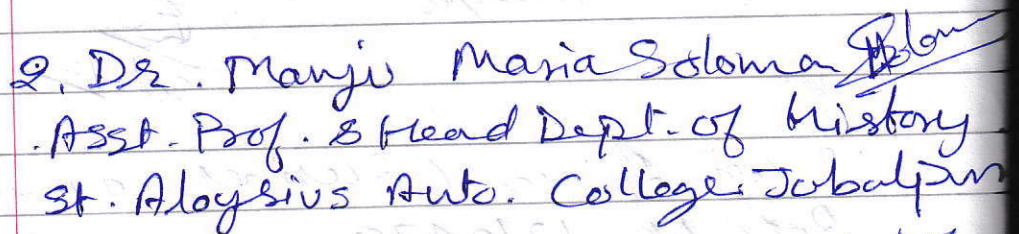 2. Dr. Manju Maria Soloman
Asst. Prof. & Head Dept. of History
St. Aloysius Auto. College Jabalpur